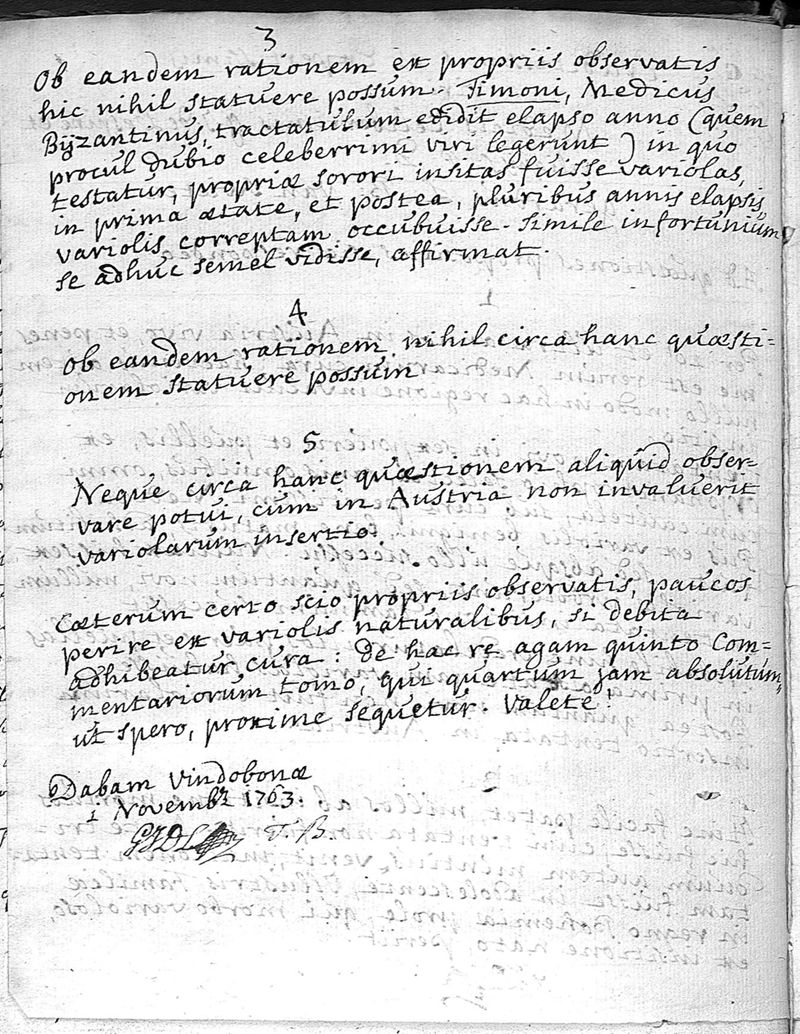 3
Ob eandem rationem ex propriis observatis
hic nihil statuere possum. Timoni, Medicus
Byzantinus, tractatulum edidit elapso anno (quem
procul dubio celeberrimi viri legerunt) in quo
testatur, propriæ sorori insitas fuisse variolas,
in prima ætate, et postea, pluribus annis elapsis
variolis correptam occubuisse. Simile infortunium
se adhuc semel vidisse, affirmat.
4
Ob eandem rationem nihil circa hanc quæsti=
onem statuere possum
5
Neque circa hanc quæstionem aliquid obser=
vare potui, cum in Austria non invaluerit
variolarum insertio.
Cæterum certo scio propriis observatis, paucos
perire ex variolis naturalibus, si debita
adhibeatur cura: de hac re agam quinto Com=
mentariorum tomo, qui quartum jam absolutum,
ut spero, proxime sequetur. Valete!
Dabam Vindobonæ
1 Novembr 1763.